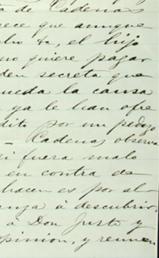 de Cadenas
rece que aunque
el hijo
no quiere pagar
den secreta que
ueda la causa
ya le han ofre
dito por un
– Cadenas observa
si fuera malo
en contra de
hacen es por el
enza á descubrir
á Don Justo y
pinion, y reunen